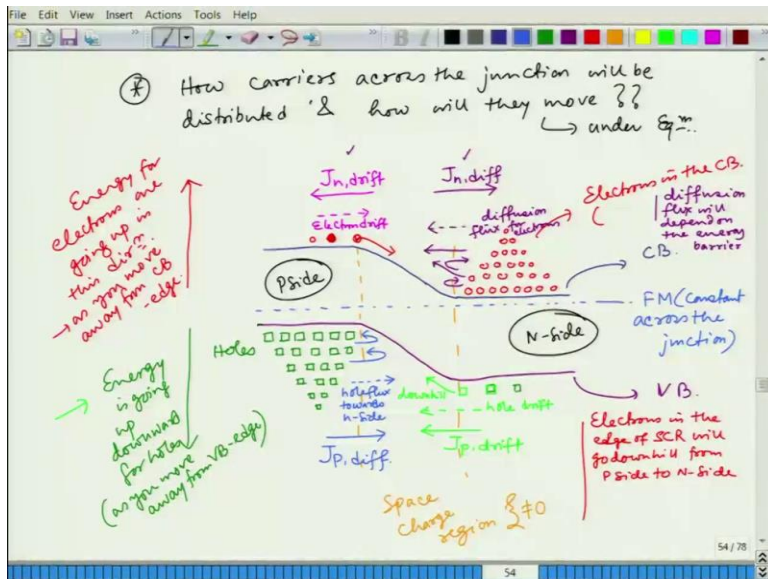 File Edit View Insert Actions Tools Help
* How carriers across the junction will be
distributed & how will they move ??
↳ under Eqm..
Energy for
electrons are
going up in
this dirn
→ as you move
away from CB
-edge.
Jn,drift
Electron drift
Jn,diff
diffusion
flux for
electrons
Electrons in the CB.
diffusion
flux will
depend on
the energy
barrier
CB.
Pside
FM (constant
across the
junction)
N-Side
Holes
Energy
is going
up
downward
for holes
(as you move
away from VB-edge)
hole flux
towards
n-side
Jp,diff.
downhill
hole drift
Jp,drift
VB.
Electrons in the
edge of SCR will
go downhill from
Pside to N-Side
Space
charge
region } ≠0
54 / 78
54